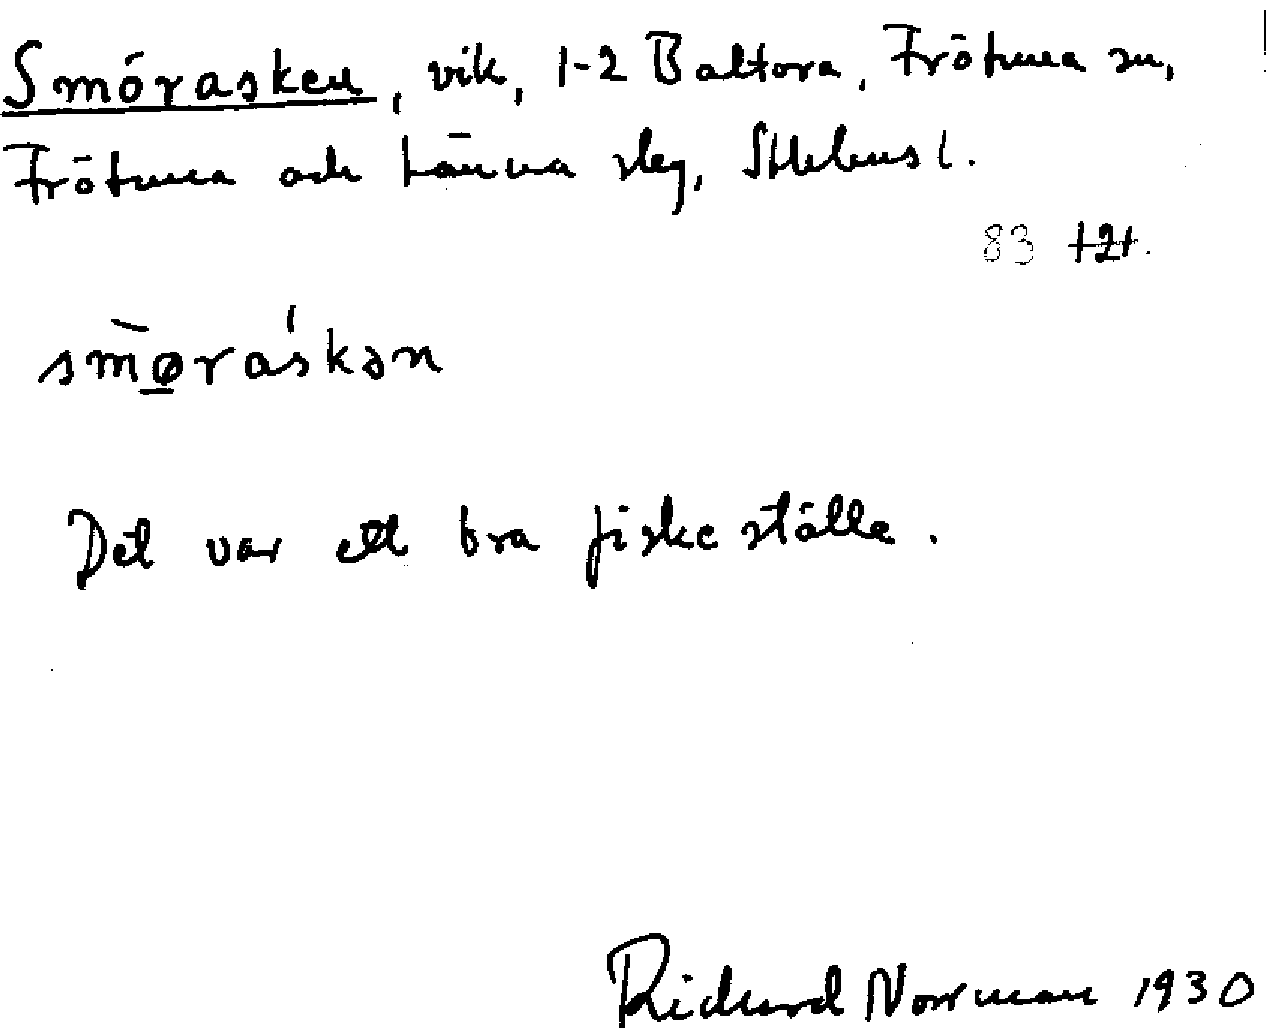 Smörasken, vik, 1-2 Baltora, Frötuna sn,
Frötuna och Länna slg, Sthlms l.
83
smøraskən
Det var ett bra fiskeställe.
Richard Norrman 1930